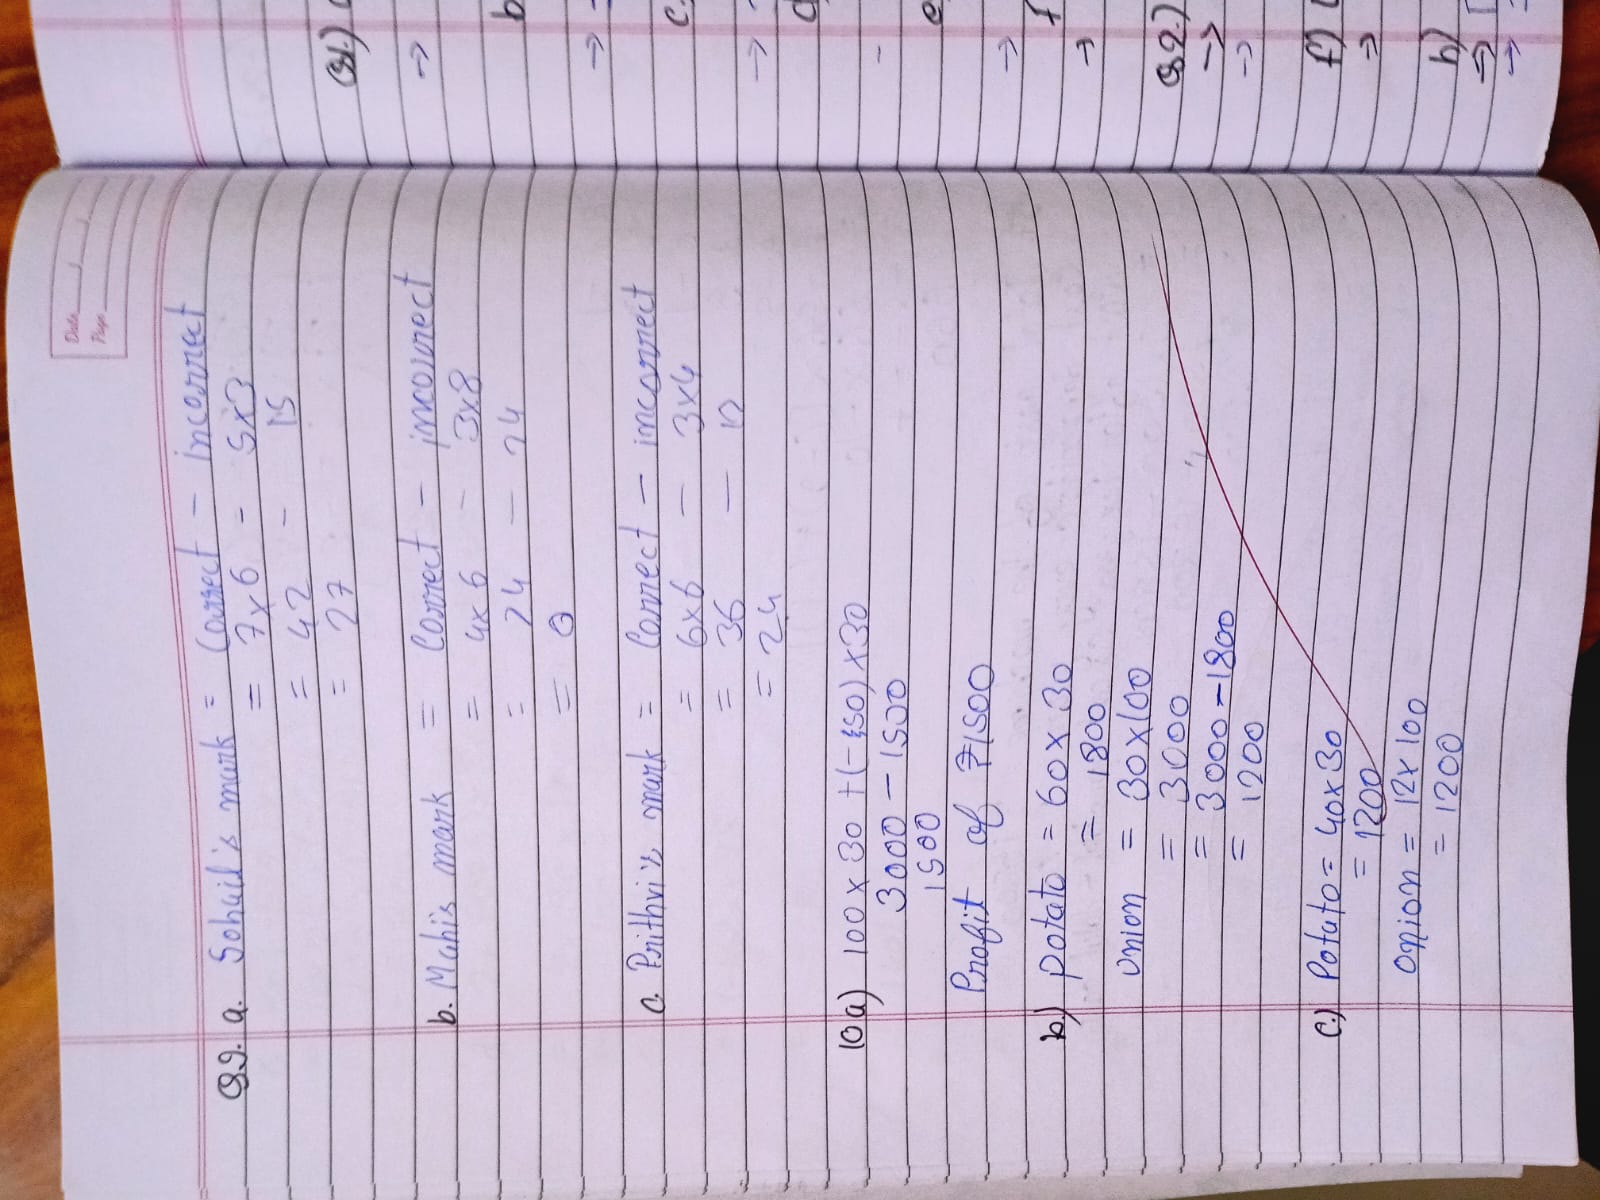 Date
Page
Q9. a. Sohail's mark = Correct - incorrect
= 7x6 - 5x3
= 42 - 15
= 27
b. Mahi's mark = Correct - incorrect
= 4x6 - 3x8
= 24 - 24
= 0
c. Prithvi's mark = Correct - incorrect
= 6x6 - 3x4
= 36 - 12
= 24
10a) 100 x 30 +(-50) x 30
3000 - 1500
1500
Profit of ₹1500
b.) potato = 60 x 30
= 1800
onion = 30x100
= 3000
= 3000 - 1800
= 1200
c.) Potato = 40x30
= 1200
onion = 12x100
= 1200
Q1.)
→
b
→
c.
→
d
-
e
→
f
→
Q2.)
→
→
f)
→
h)
→
→